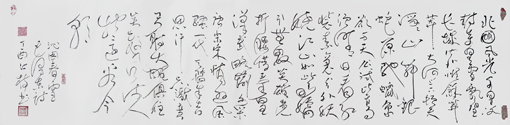 北国风光千里冰
封万里雪飘望长
城内外惟馀莽
莽大河上下顿失
滔滔山舞银
蛇原驰蜡象
欲与天公试比高
须晴日看红
装素裹分外妖
娆江山如此多娇
引无数英雄竞
折腰惜秦皇
汉武略输文采
唐宗宋祖稍逊风
骚一代天骄成吉
思汗只识弯弓
射大雕俱往
矣数风流人
物还看今
朝
沁园春雪
毛泽东词